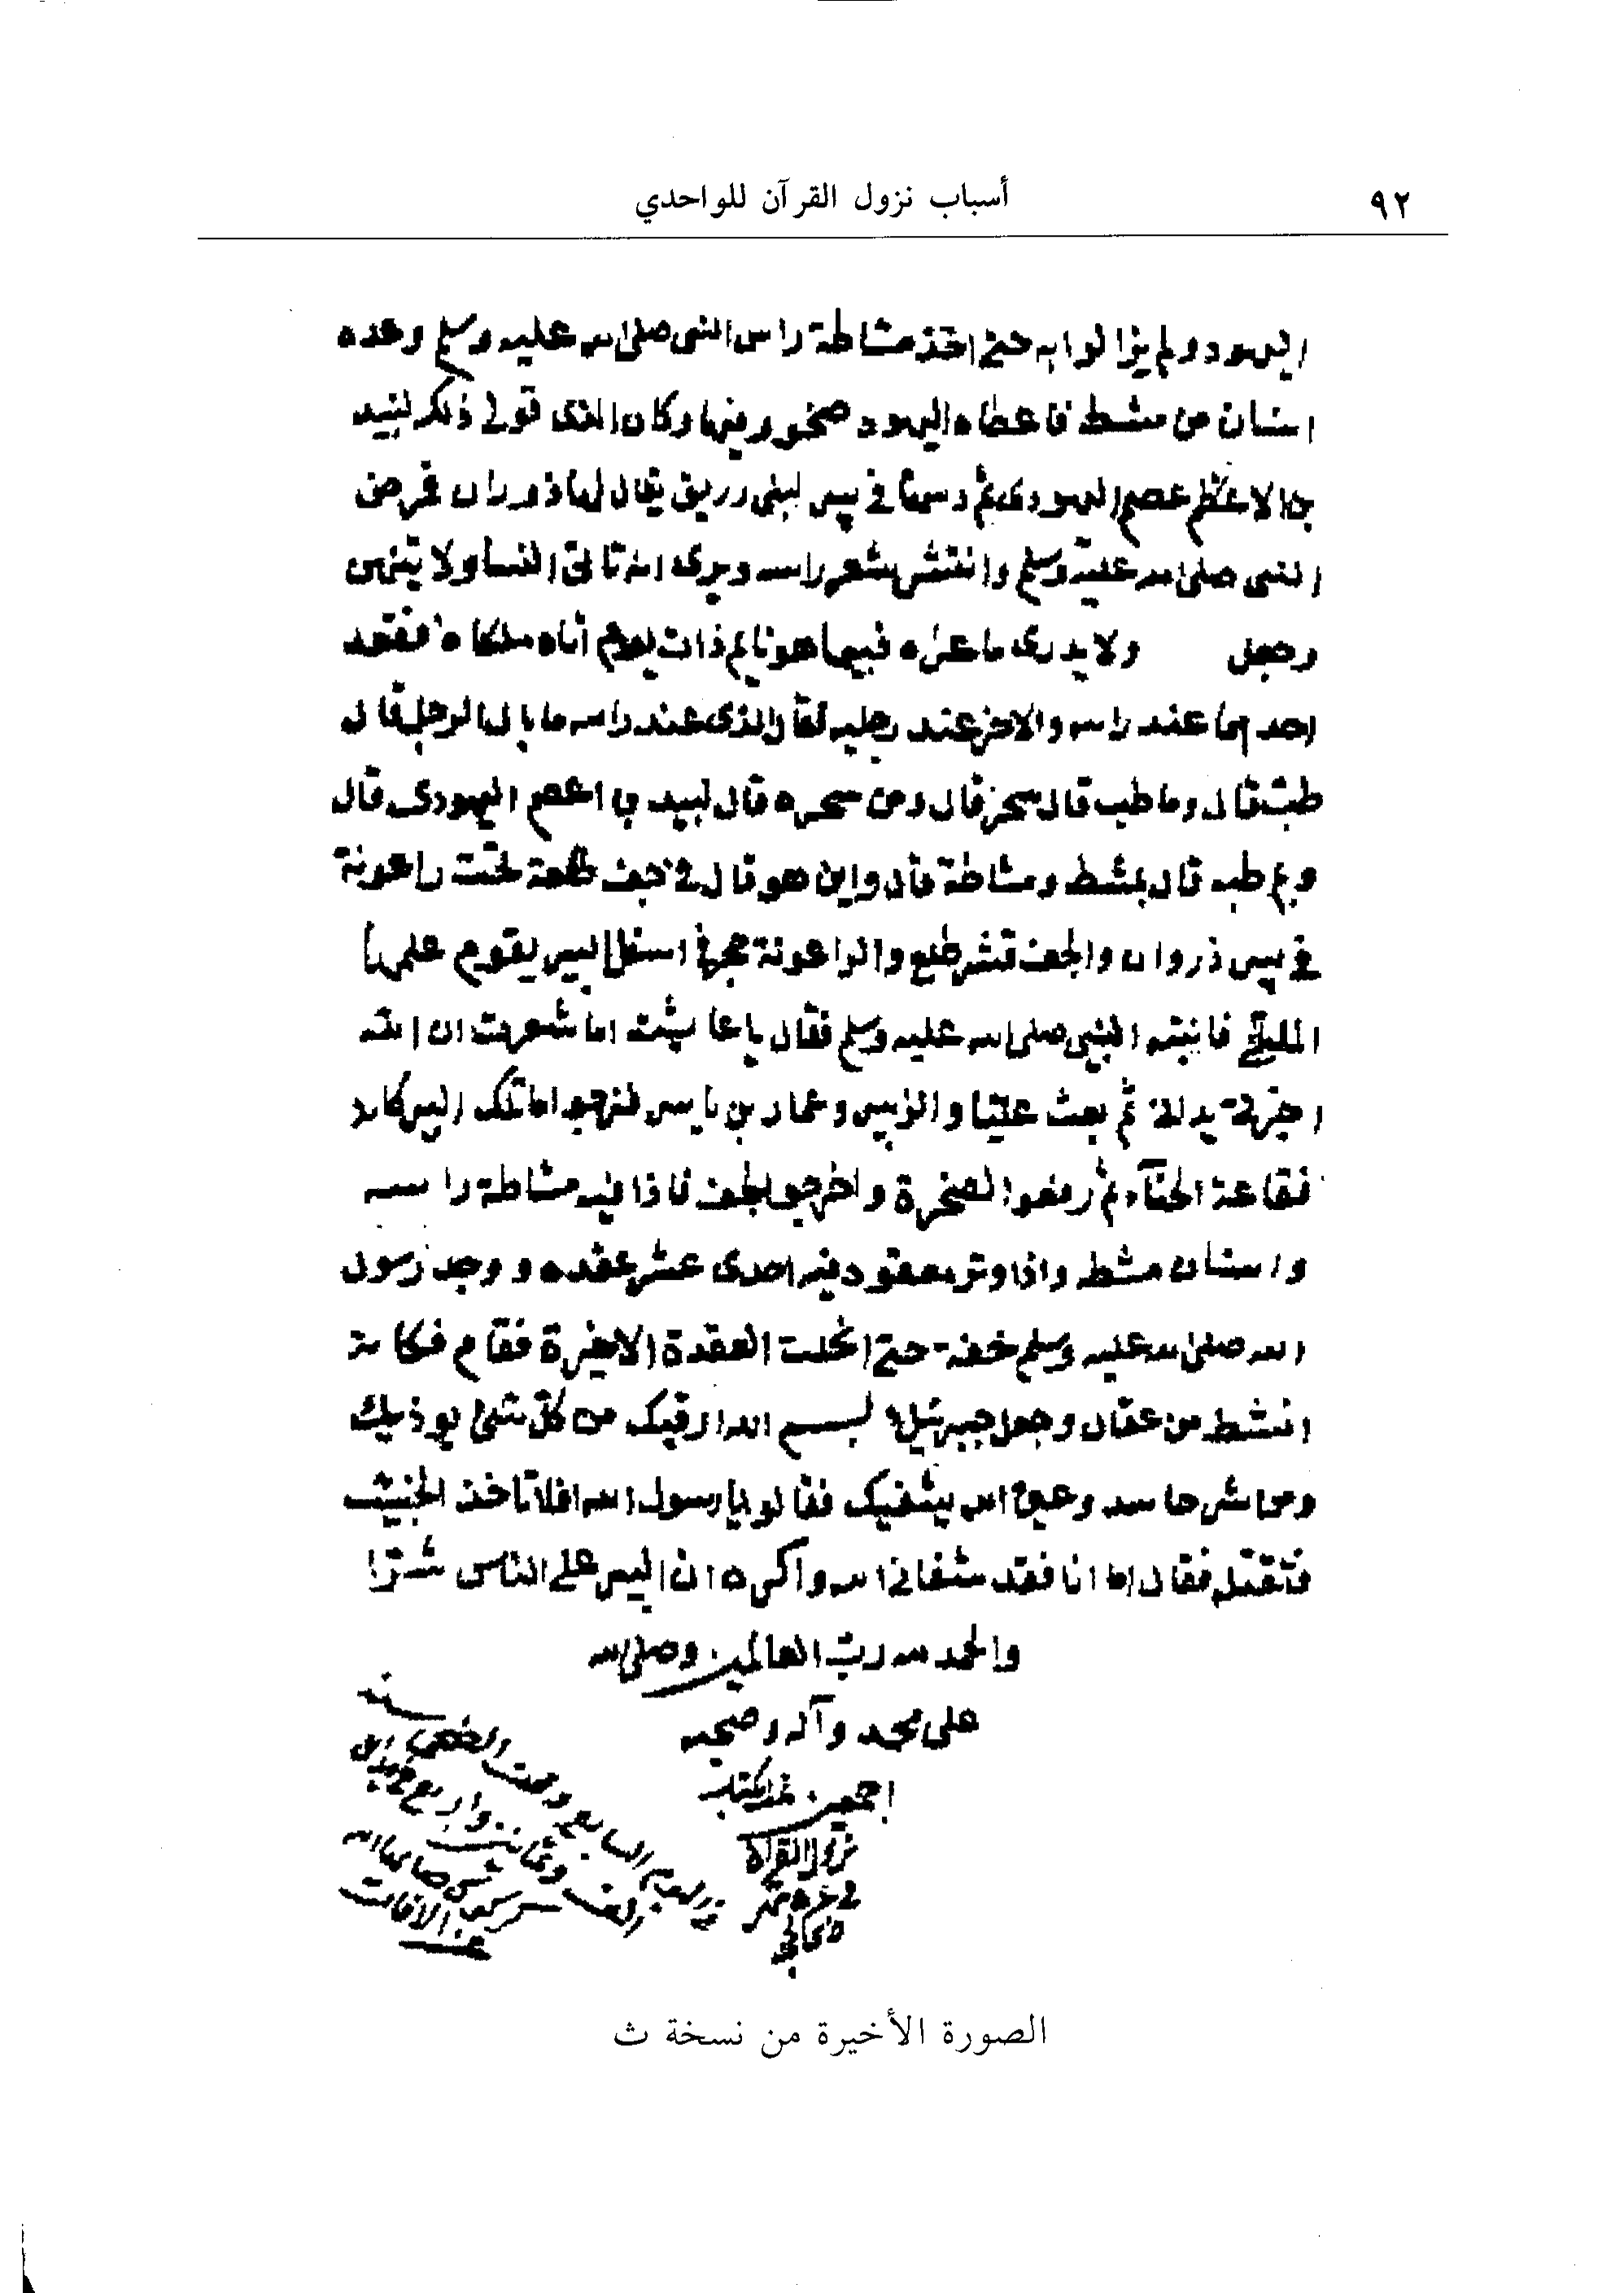 ٩٢
أسباب نزول القرآن للواحدي
اليهود ولم يزالوا به حتى اخذ مشاطة راس النبى صلى الله عليه وسلم وعده
اسنان من مشط فاعطاه اليهود فيها وكان الذى تولى ذلك لبيد
بن الاعصم اليهودى ثم دسها في بير لبنى زريق يقال لها ذوروان فمرض
النبى صلى الله عليه وسلم وانتثر شعر راسه ويرى انه تاتى النسا ولا يتهن
وجعل ولا يدرى ما عراه فبيما هو نايم ذات يوم أتاه ملكان فقعد
احدهما عند راسه والاخر عند رجليه فقال الذى عند راسه ما بال الرجل قال
طب قال وما طب قال سحر قال ومن سحره قال لبيد بن اعصم اليهودى قال
وبم طبه قال بمشط ومشاطة قال واين هو قال في جف طلعة تحت راعونة
في بير ذروان والجف قشر طلع والراعونة حجر في اسفل البير يقوم عليها
المايح فانتبه النبى صلى الله عليه وسلم فقال يا عايشة اما شعرت ان الله
اخبرنى بدائى ثم بعث عليا والزبير وعمار بن ياسر فنزحوا ماء تلك البير كانه
نقاعة الحناء ثم رفعوا الصخرة واخرجوا الجف فاذا فيه مشاطة راسه
واسنان مشط واذا وتر معقود فيه احدى عشر عقده ووجد رسول
الله صلى الله عليه وسلم خفة حتى انحلت العقدة الاخيرة فقام فكانه
انشط من عقال وجعل جبرئيل بسم الله ارقيك من كل شئ يوذيك
ومن شر حاسد وعين الله يشفيك فقالوا يا رسول الله افلا تاخذ الخبيث
فتقتله فقال اما انا فقد شفانى الله واكره ان اثير على الناس شرّا
والحمد لله رب العالمين وصلى الله
على محمد وآله وصحبه
اجمعين
نزول القرآن
الصورة الأخيرة من نسخة ث